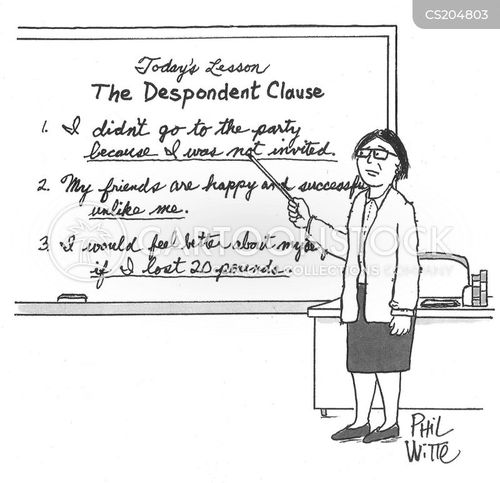 CS204803
Today's Lesson
The Despondent Clause
1. I didn't go to the party
because I was not invited.
2. My friends are happy and successful
unlike me.
3 I would feel better about myself
if I lost 20 pounds.
CARTOONSTOCK
COLLECTIONS COMPANY
PHIL
WITTE